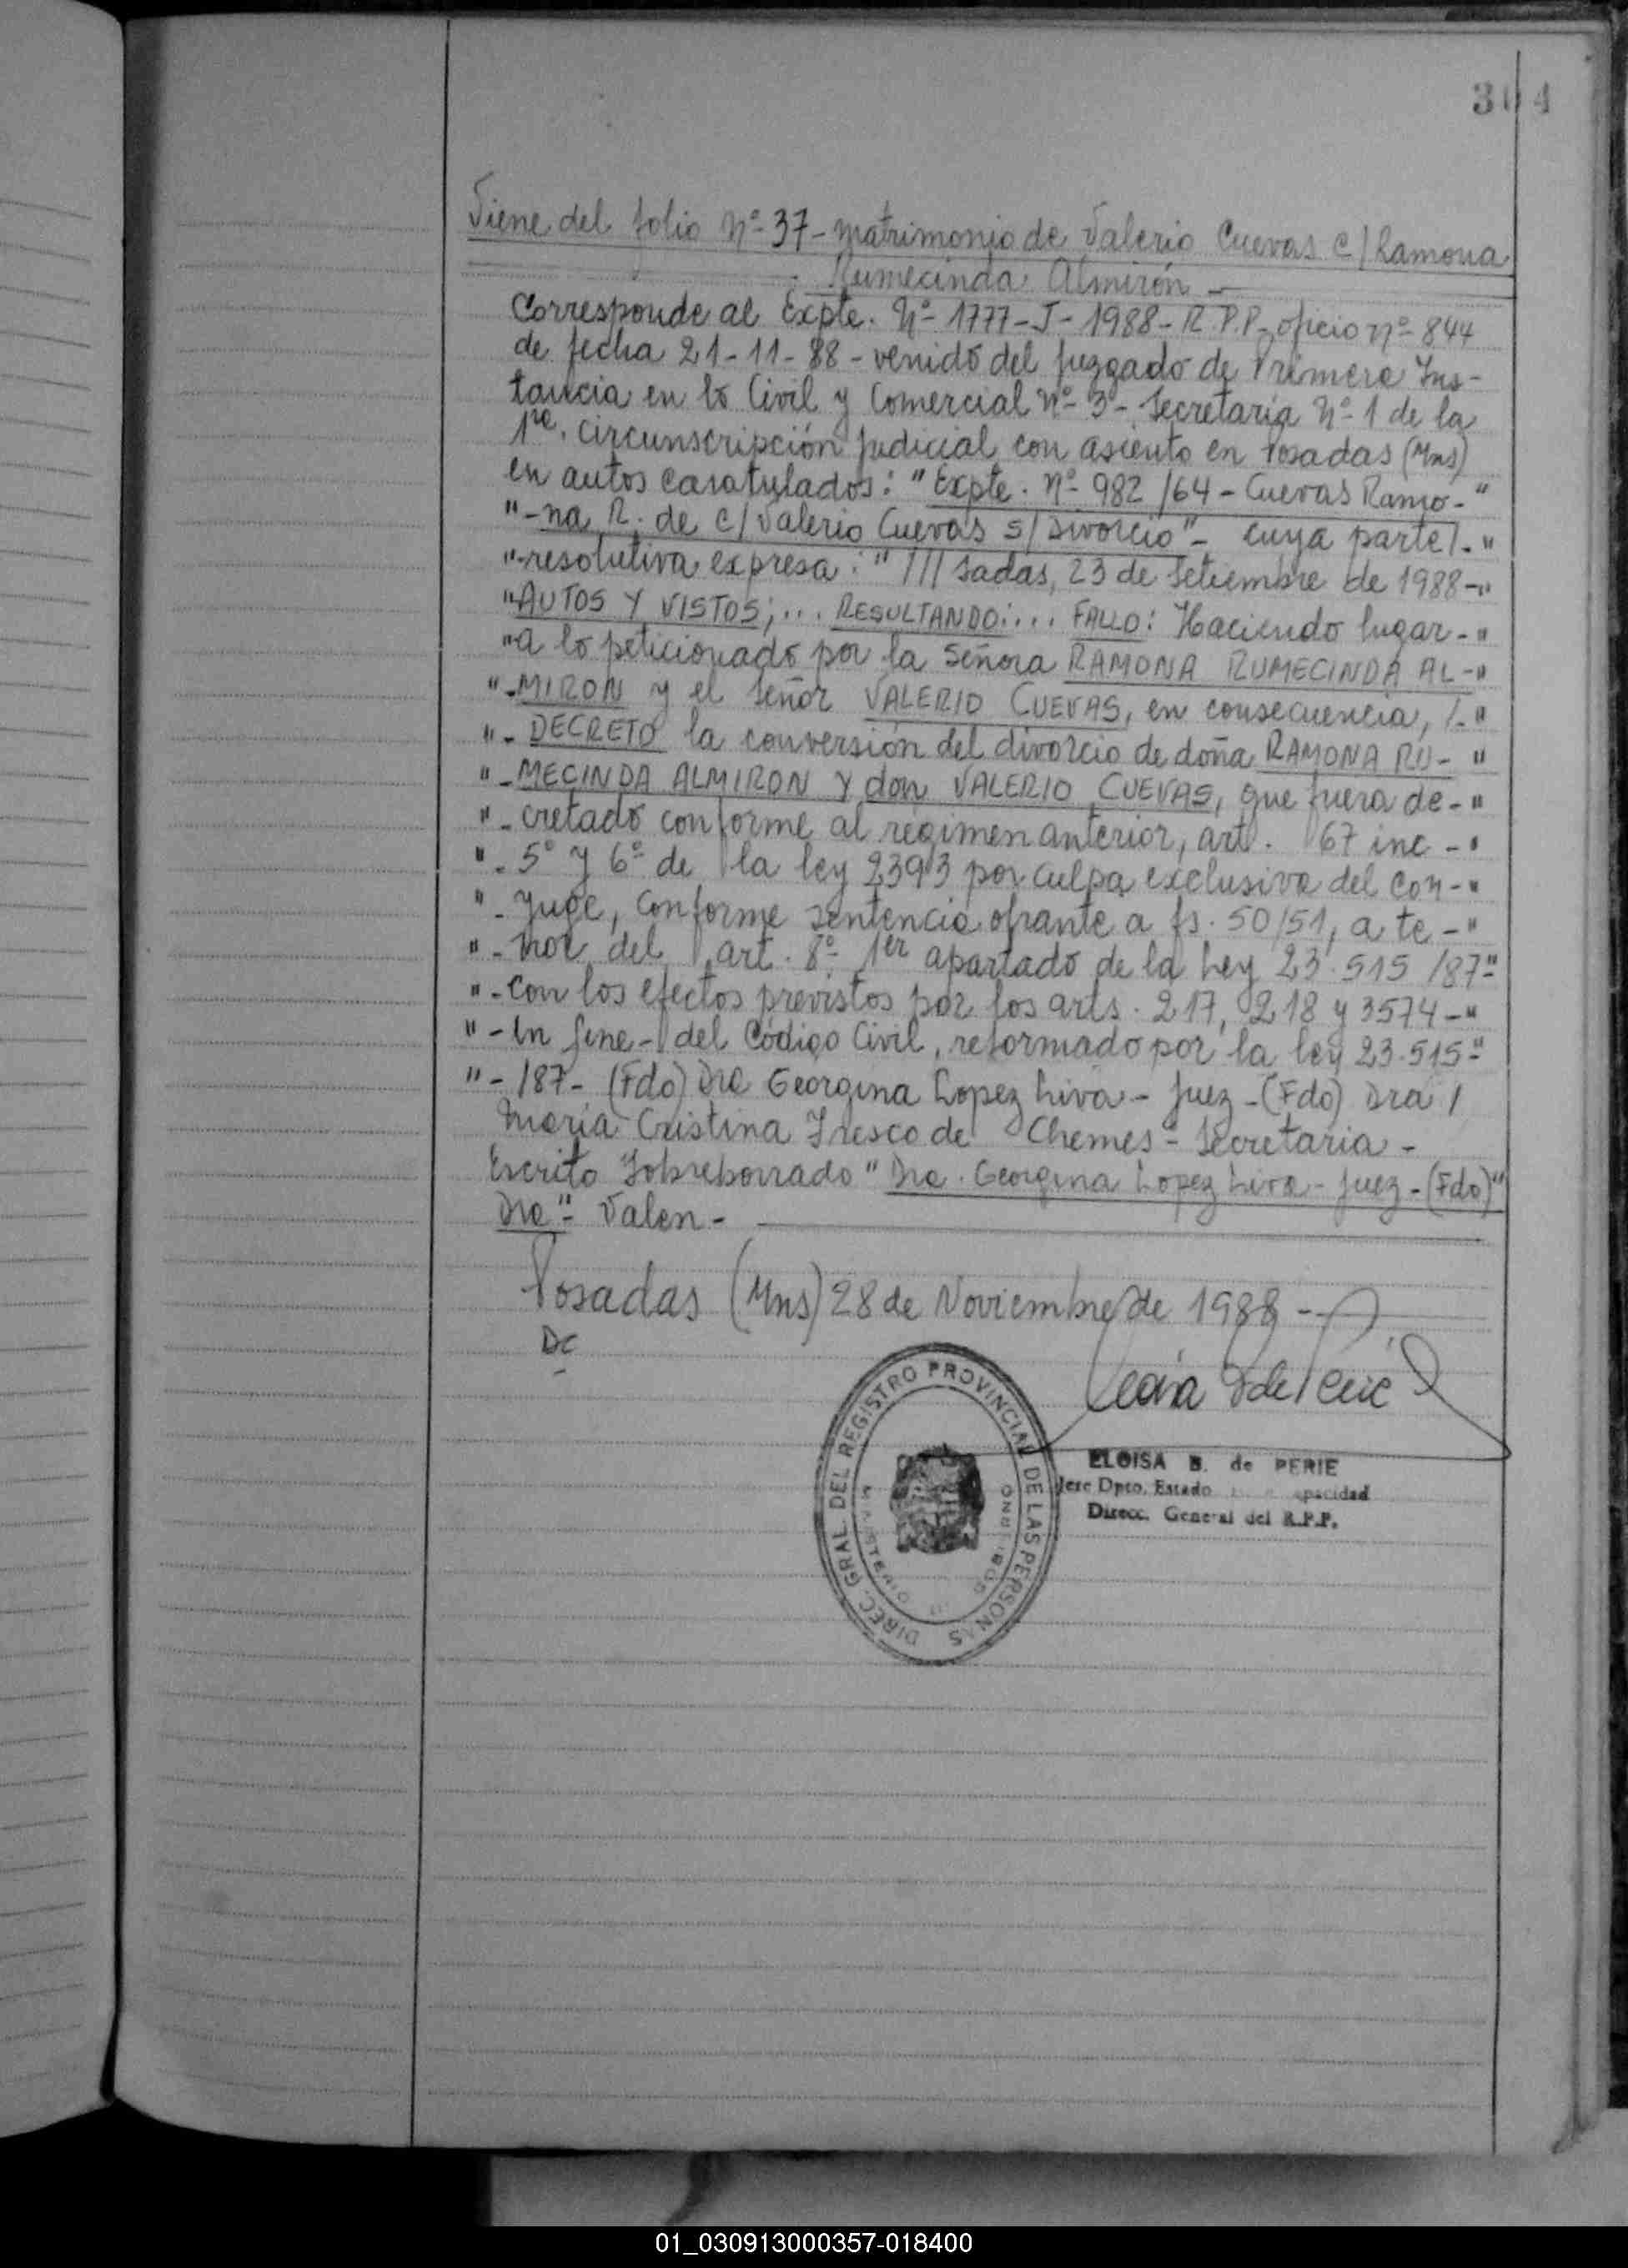 304
Viene del folio Nº 37 - matrimonio de Valerio Cuevas c/ Ramona
Rumecinda Almirón -
Corresponde al Expte. Nº 1777-J-1988-R.P.P. oficio nº 844
de fecha 21-11-88 - venido del Juzgado de Primera Ins-
tancia en lo Civil y Comercial Nº 3 - Secretaría Nº 1 de la
1ra. circunscripción Judicial con asiento en Posadas (Mns)
en autos caratulados: "Expte. Nº 982/64 - Cuevas Ramo-"
"-na R. de c/ Valerio Cuevas s/ Divorcio" - cuya parte/-"
"-resolutiva expresa: "///sadas, 23 de Setiembre de 1988-"
"AUTOS Y VISTOS;... RESULTANDO:... FALLO: Haciendo lugar-"
"a lo peticionado por la señora RAMONA RUMECINDA AL-"
"-MIRON y el señor VALERIO CUEVAS, en consecuencia, /-"
"- DECRETO la conversión del divorcio de doña RAMONA RU-"
"-MECINDA ALMIRON Y don VALERIO CUEVAS, que fuera de-"
"- cretado conforme al régimen anterior, art. 67 inc -"
"- 5º y 6º de la ley 2393 por culpa exclusiva del con-"
"- yuge, conforme sentencia obrante a fs. 50/51, a te-"
"- nor del art. 8º 1er apartado de la Ley 23.515/87-"
"- con los efectos previstos por los arts. 217, 218 y 3574-"
"- in fine - del Código Civil, reformado por la ley 23.515-"
"- /87- (Fdo) Dra Georgina Lopez Liva - Juez - (Fdo) Dra /
María Cristina Fresco de Chemes - Secretaria -
Escrito Sobreborrado "Dra. Georgina Lopez Liva - Juez - (Fdo)"
Dra" - Valen -
Posadas (Mns) 28 de Noviembre de 1988 -
DC
DIREC. GRAL. DEL REGISTRO PROVINCIAL DE LAS PERSONAS
ELOISA B. de PERIE
Jefe Dpto. Estado pacidad
Direcc. General del R.P.P.
01_030913000357-018400